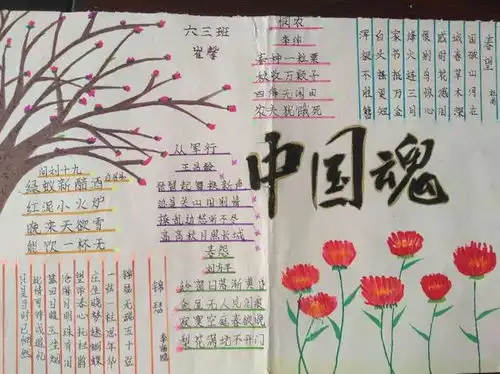 六三班
崔馨
悯农
李绅
春种一粒粟
秋收万颗子
四海无闲田
农夫犹饿死
春望
国破山河在
城春草木深
感时花溅泪
恨别鸟惊心
烽火连三月
家书抵万金
白头搔更短
浑欲不胜簪
中国魂
问刘十九
绿蚁新醅酒
红泥小火炉
晚来天欲雪
能饮一杯无
从军行
王昌龄
琵琶起舞换新声
总是关山旧别情
撩乱边愁听不尽
高高秋月照长城
春怨
刘方平
纱窗日落渐黄昏
金屋无人见泪痕
寂寞空庭春欲晚
梨花满地不开门
锦瑟
李商隐
锦瑟无端五十弦
一弦一柱思华年
庄生晓梦迷蝴蝶
望帝春心托杜鹃
沧海月明珠有泪
蓝田日暖玉生烟
此情可待成追忆
只是当时已惘然